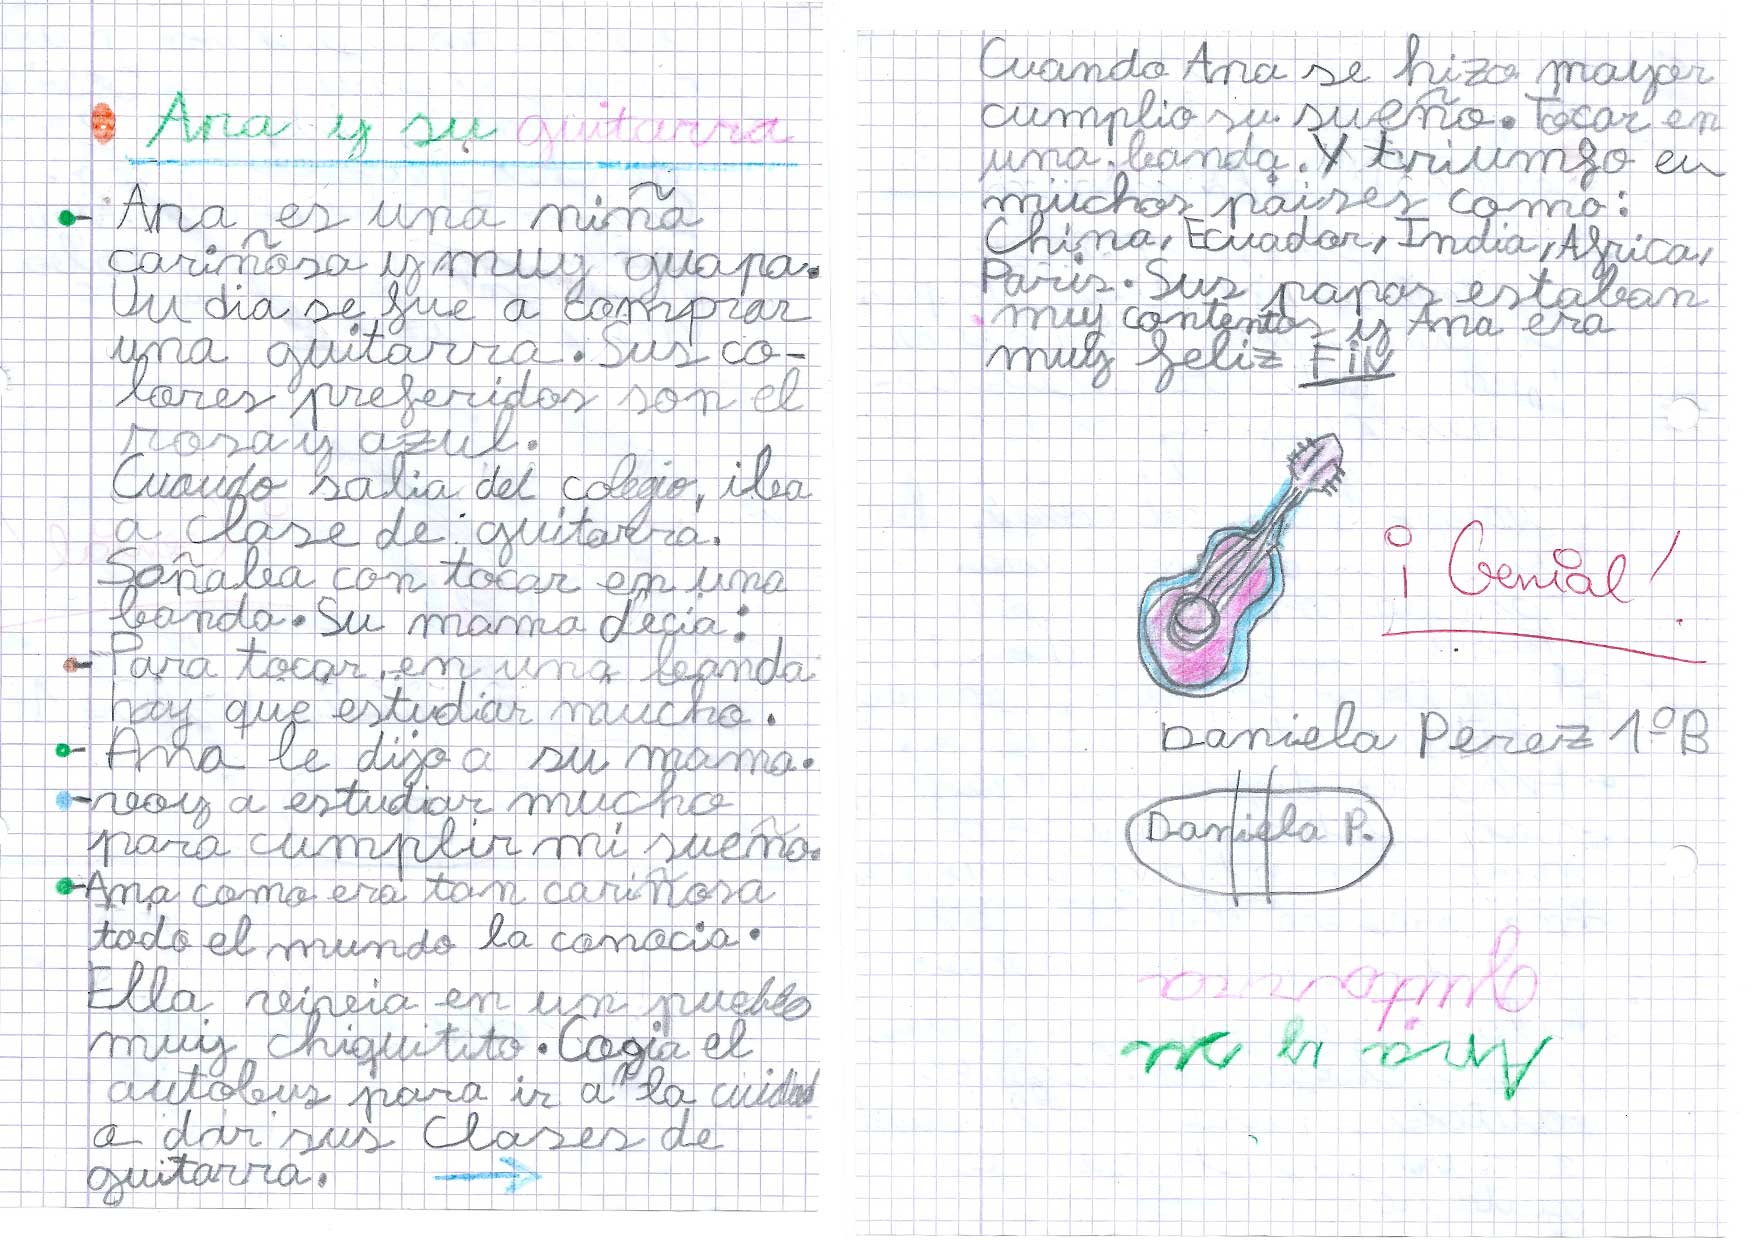 Ana y su guitarra
Ana es una niña
cariñosa y muy guapa.
Un dia se fue a comprar
una guitarra. Sus co-
lores preferidos son el
rosa y azul.
Cuando salia del colegio, iba
a clase de guitarra.
Soñaba con tocar en una
banda. Su mama decia:
- Para tocar en una banda
hay que estudiar mucho.
- Ana le dijo a su mama.
- voy a estudiar mucho
para cumplir mi sueño.
- Ana como era tan cariñosa
todo el mundo la conocia.
Ella vivia en un pueblo
muy chiquitito. Cogia el
autobus para ir a la cuidad
a dar sus clases de
guitarra.
Cuando Ana se hizo mayor
cumplio su sueño. Tocar en
una banda. Y triumfo en
muchos paises como:
China, Ecuador, India, Africa,
Paris. Sus papas estaban
muy contentos y Ana era
muy feliz FIN
¡Genial!
Daniela Perez 1ºB
Daniela P.
Ana y su
guitarra